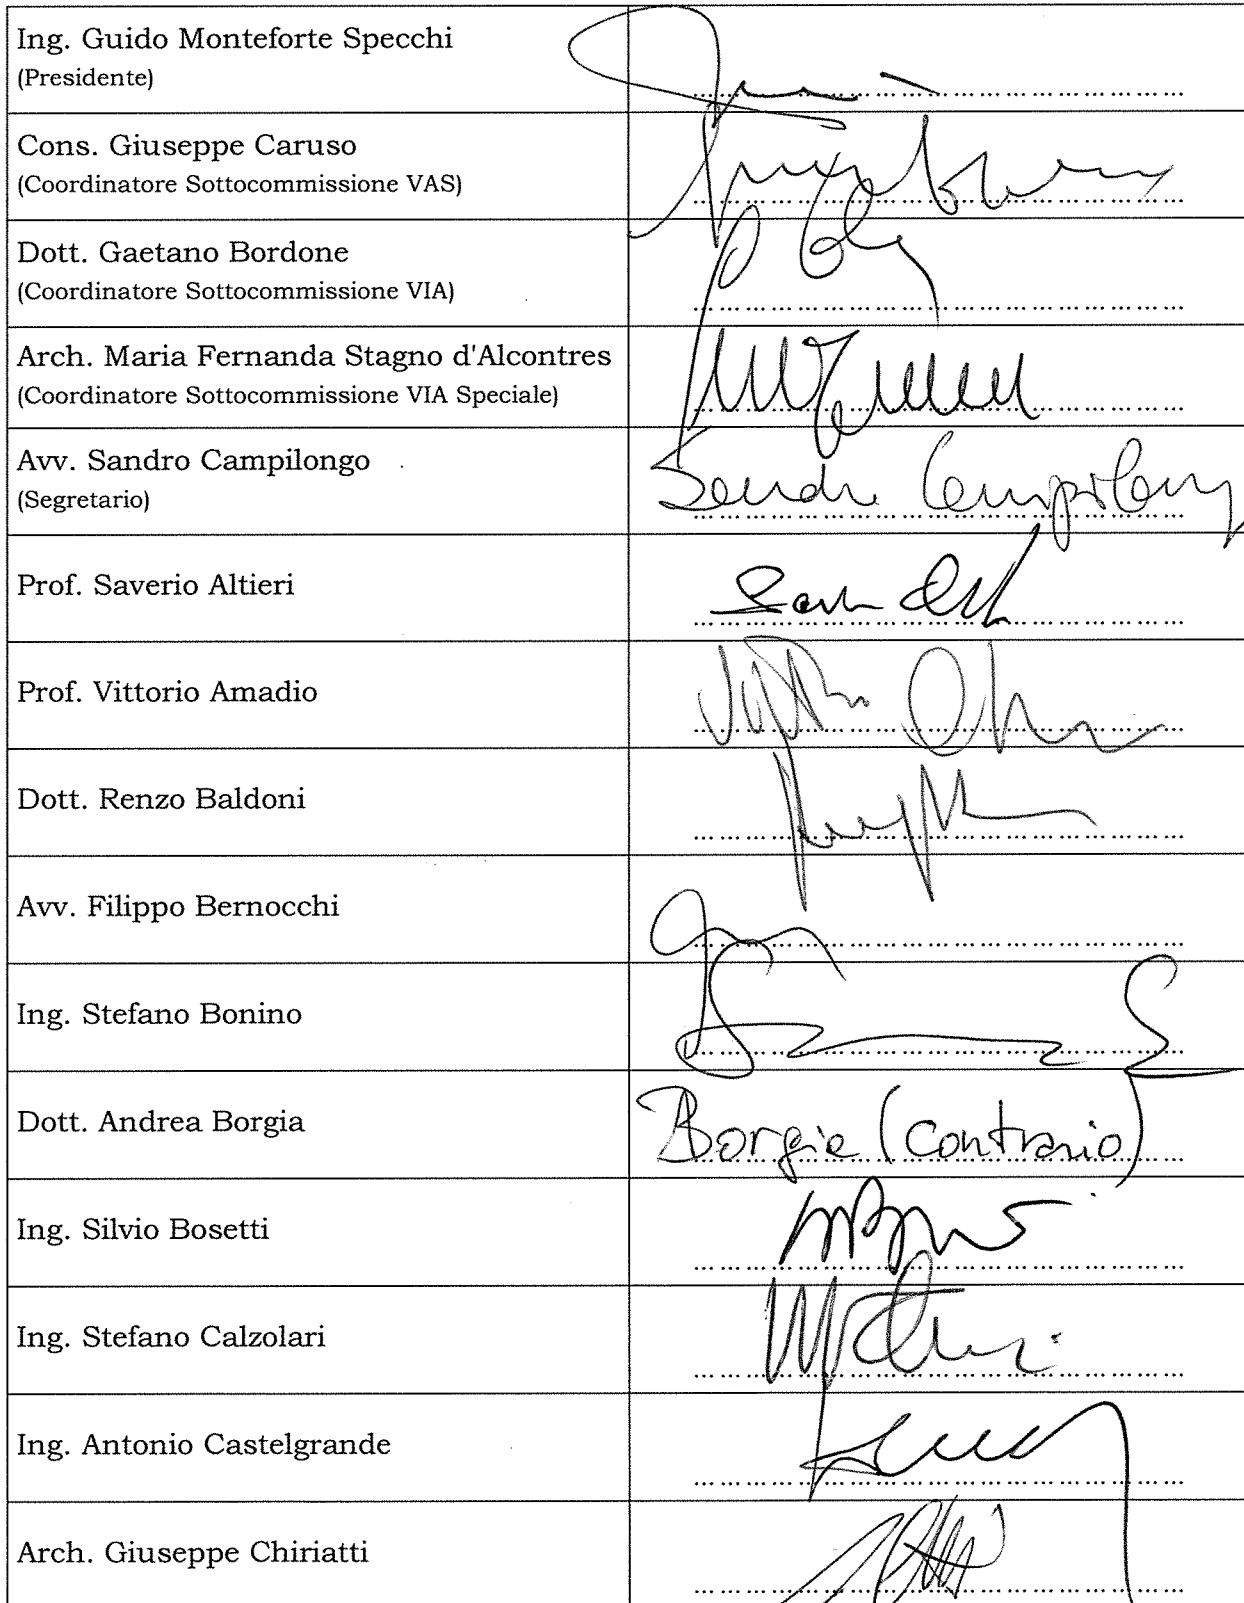 Ing. Guido Monteforte Specchi
(Presidente)
Cons. Giuseppe Caruso
(Coordinatore Sottocommissione VAS)
Dott. Gaetano Bordone
(Coordinatore Sottocommissione VIA)
Arch. Maria Fernanda Stagno d'Alcontres
(Coordinatore Sottocommissione VIA Speciale)
Avv. Sandro Campilongo
(Segretario)
Sandro Campilongo
Prof. Saverio Altieri
Prof. Vittorio Amadio
Dott. Renzo Baldoni
Avv. Filippo Bernocchi
Ing. Stefano Bonino
Dott. Andrea Borgia
Borgia (contrario)
Ing. Silvio Bosetti
Ing. Stefano Calzolari
Ing. Antonio Castelgrande
Arch. Giuseppe Chiriatti